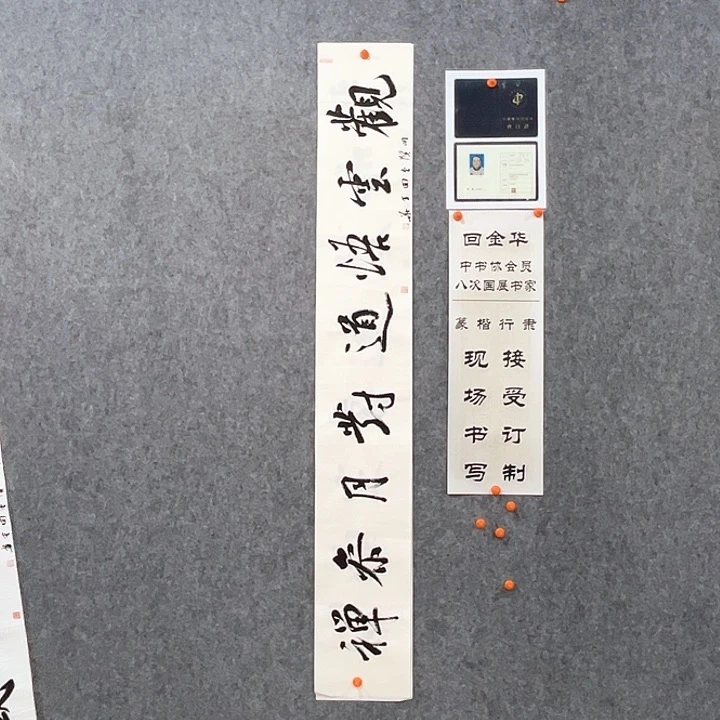 觀雲悟道對月參禪
回金华
中书协会员
八次国展书家
篆楷行隶
接受订制
现场书写